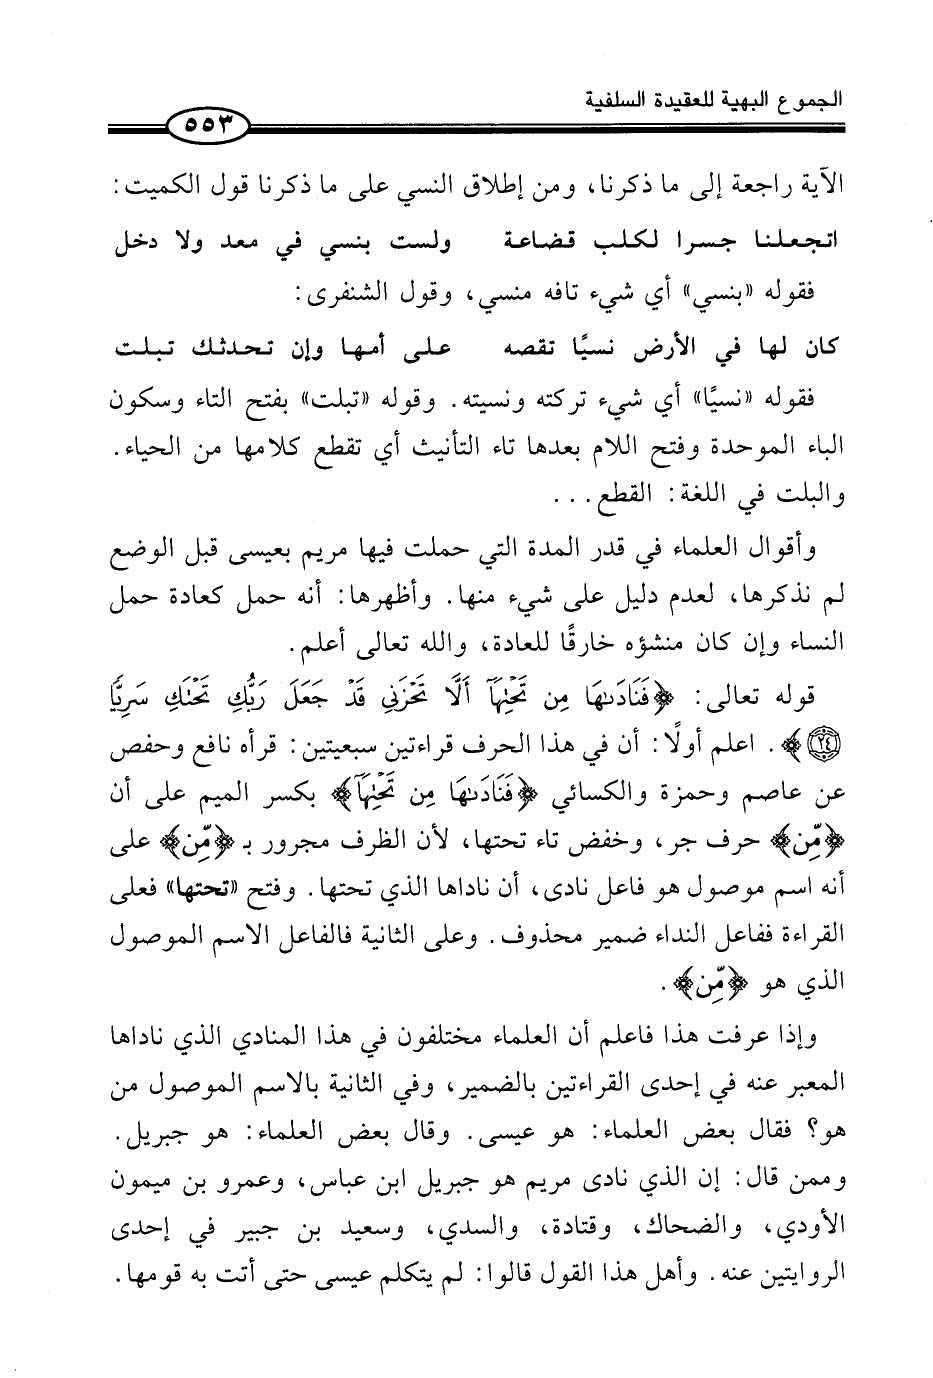 الجموع البهية للعقيدة السلفية
٥٥٣
الآية راجعة إلى ما ذكرنا، ومن إطلاق النسي على ما ذكرنا قول الكميت:
اتجعلنا جسرا لكلب قضاعة ولست بنسي في معد ولا دخل
فقوله «بنسي» أي شيء تافه منسي، وقول الشنفرى:
كان لها في الأرض نسيًا تقصه على أمها وإن تحدثك تبلت
فقوله «نسيًا» أي شيء تركته ونسيته. وقوله «تبلت» بفتح التاء وسكون
الباء الموحدة وفتح اللام بعدها تاء التأنيث أي تقطع كلامها من الحياء.
والبلت في اللغة: القطع...
وأقوال العلماء في قدر المدة التي حملت فيها مريم بعيسى قبل الوضع
لم نذكرها، لعدم دليل على شيء منها. وأظهرها: أنه حمل كعادة حمل
النساء وإن كان منشؤه خارقًا للعادة، والله تعالى أعلم.
قوله تعالى: ﴿فَنَادَىٰهَا مِن تَحْتِهَآ أَلَّا تَحْزَنِي قَدْ جَعَلَ رَبُّكِ تَحْتَكِ سَرِيًّا
٢٤﴾. اعلم أولًا: أن في هذا الحرف قراءتين سبعيتين: قرأه نافع وحفص
عن عاصم وحمزة والكسائي ﴿فَنَادَىٰهَا مِن تَحْتِهَآ﴾ بكسر الميم على أن
﴿مِّن﴾ حرف جر، وخفض تاء تحتها، لأن الظرف مجرور بـ ﴿مِّن﴾ على
أنه اسم موصول هو فاعل نادى، أن ناداها الذي تحتها. وفتح «تحتها» فعلى
القراءة ففاعل النداء ضمير محذوف. وعلى الثانية فالفاعل الاسم الموصول
الذي هو ﴿مِّن﴾.
وإذا عرفت هذا فاعلم أن العلماء مختلفون في هذا المنادي الذي ناداها
المعبر عنه في إحدى القراءتين بالضمير، وفي الثانية بالاسم الموصول من
هو؟ فقال بعض العلماء: هو عيسى. وقال بعض العلماء: هو جبريل.
وممن قال: إن الذي نادى مريم هو جبريل ابن عباس، وعمرو بن ميمون
الأودي، والضحاك، وقتادة، والسدي، وسعيد بن جبير في إحدى
الروايتين عنه. وأهل هذا القول قالوا: لم يتكلم عيسى حتى أتت به قومها.